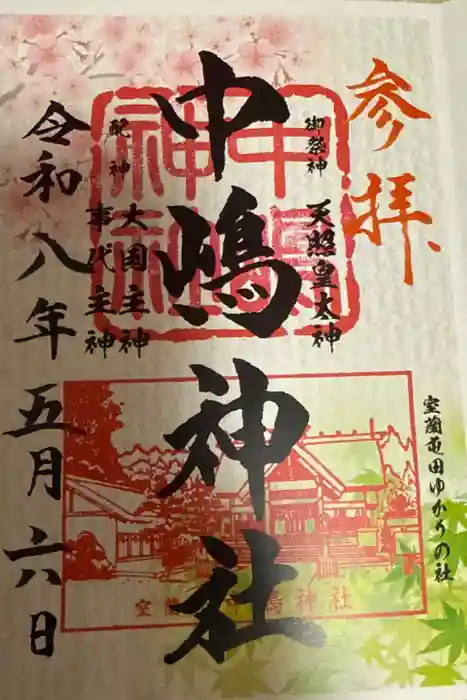 参拝
室蘭亘田ゆかりの社
御祭神
天照皇太神
中嶋神社
配神
大国主神
事代主神
令和八年五月六日
室蘭 中嶋神社